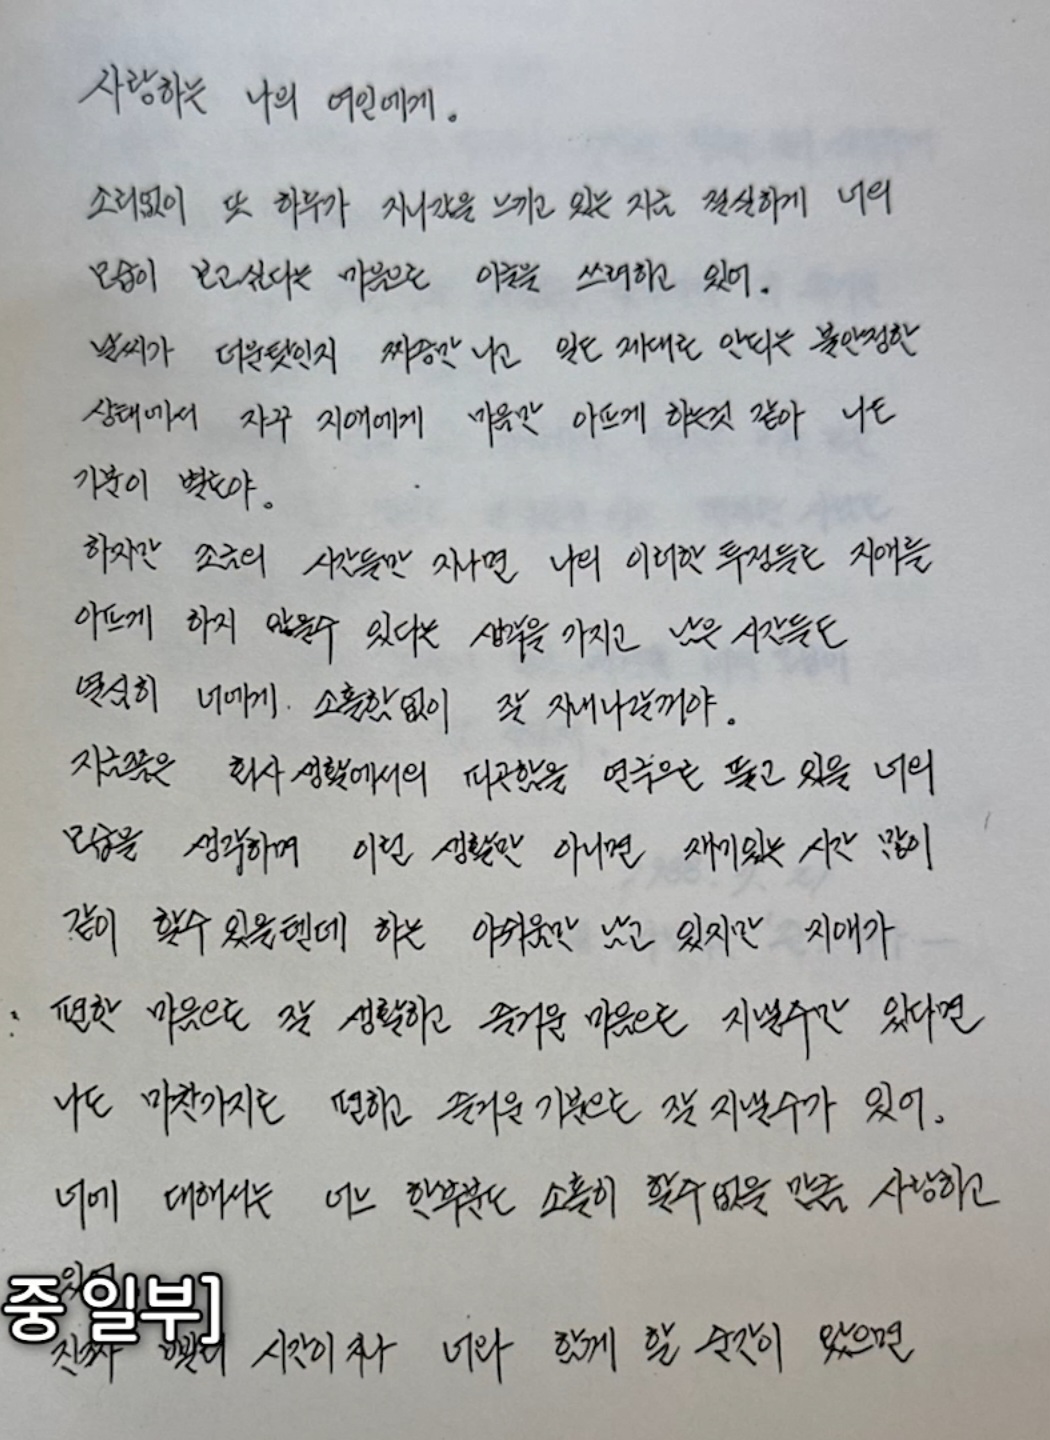 사랑하는 나의 여인에게.
소리없이 또 하루가 지나감을 느끼고 있는 지금 절실하게 너의
모습이 보고싶다는 마음으로 이글을 쓰려하고 있어.
날씨가 더운탓인지 짜증만 나고 일도 제대로 안되는 불안정한
상태에서 자꾸 지애에게 마음만 아프게 하는것 같아 나도
기분이 별로야.
하자만 조금의 시간들만 지나면 나의 이러한 투정들도 지애를
아프게 하지 않을수 있다는 생각을 가지고 남은 시간들도
열심히 너에게 소홀함없이 잘 지내나갈꺼야.
지금쯤은 회사 생활에서의 피곤함을 연극으로 풀고 있을 너의
모습을 생각하며 이런 생활만 아니면 재미있는 시간 많이
같이 할수 있을텐데 하는 아쉬움만 남고 있지만 지애가
편한 마음으로 잘 생활하고 즐거운 마음으로 지낼수만 있다면
나도 마찬가지로 편하고 즐거운 기분으로 잘 지낼수가 있어.
너에 대해서는 어느 한부분도 소홀히 할수 없을 만큼 사랑하고
있어.
중 일부]
진짜 빨리 시간이 지나 너와 함께 할 순간이 왔으면